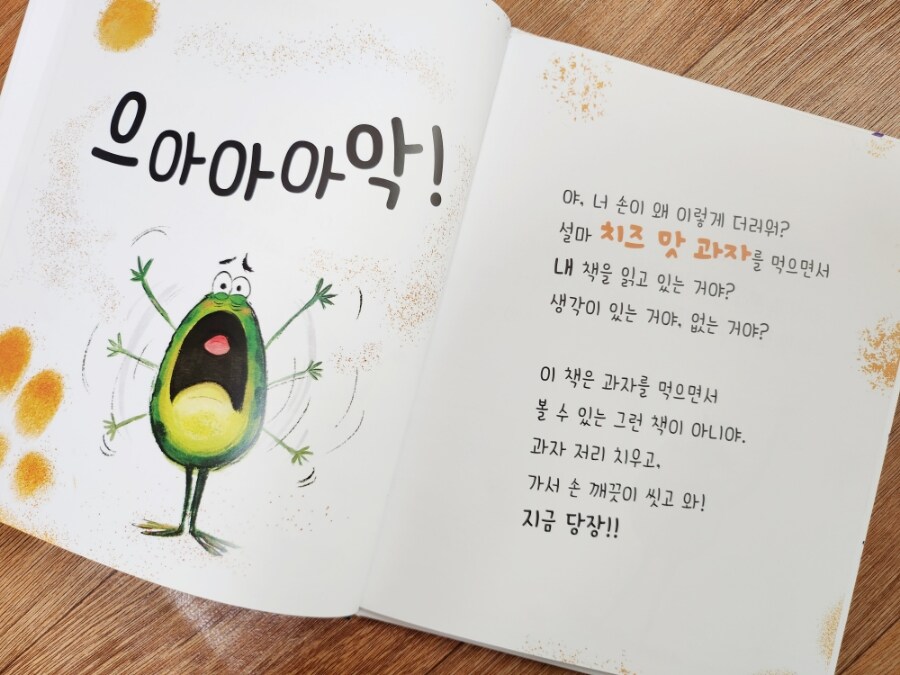 으아아아악!
야, 너 손이 왜 이렇게 더러워?
설마 치즈 맛 과자를 먹으면서
내 책을 읽고 있는 거야?
생각이 있는 거야, 없는 거야?
이 책은 과자를 먹으면서
볼 수 있는 그런 책이 아니야.
과자 저리 치우고,
가서 손 깨끗이 씻고 와!
지금 당장!!